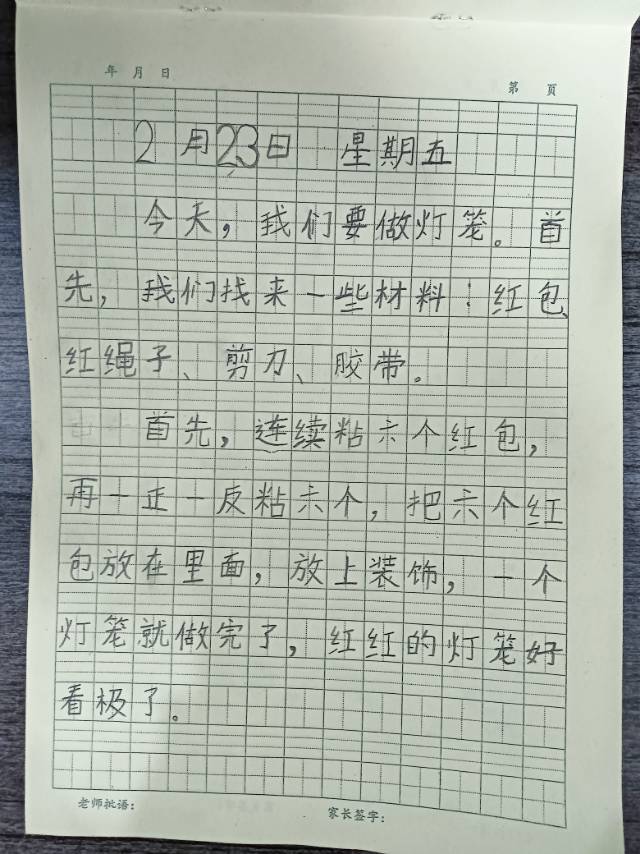 年 月 日
第 页
2月23日 星期五
今天，我们要做灯笼。首
先，我们找来一些材料：红包、
红绳子、剪刀、胶带。
首先，连续粘六个红包，
再一正一反粘六个，把六个红
包放在里面，放上装饰，一个
灯笼就做完了，红红的灯笼好
看极了。
老师批语：
家长签字：